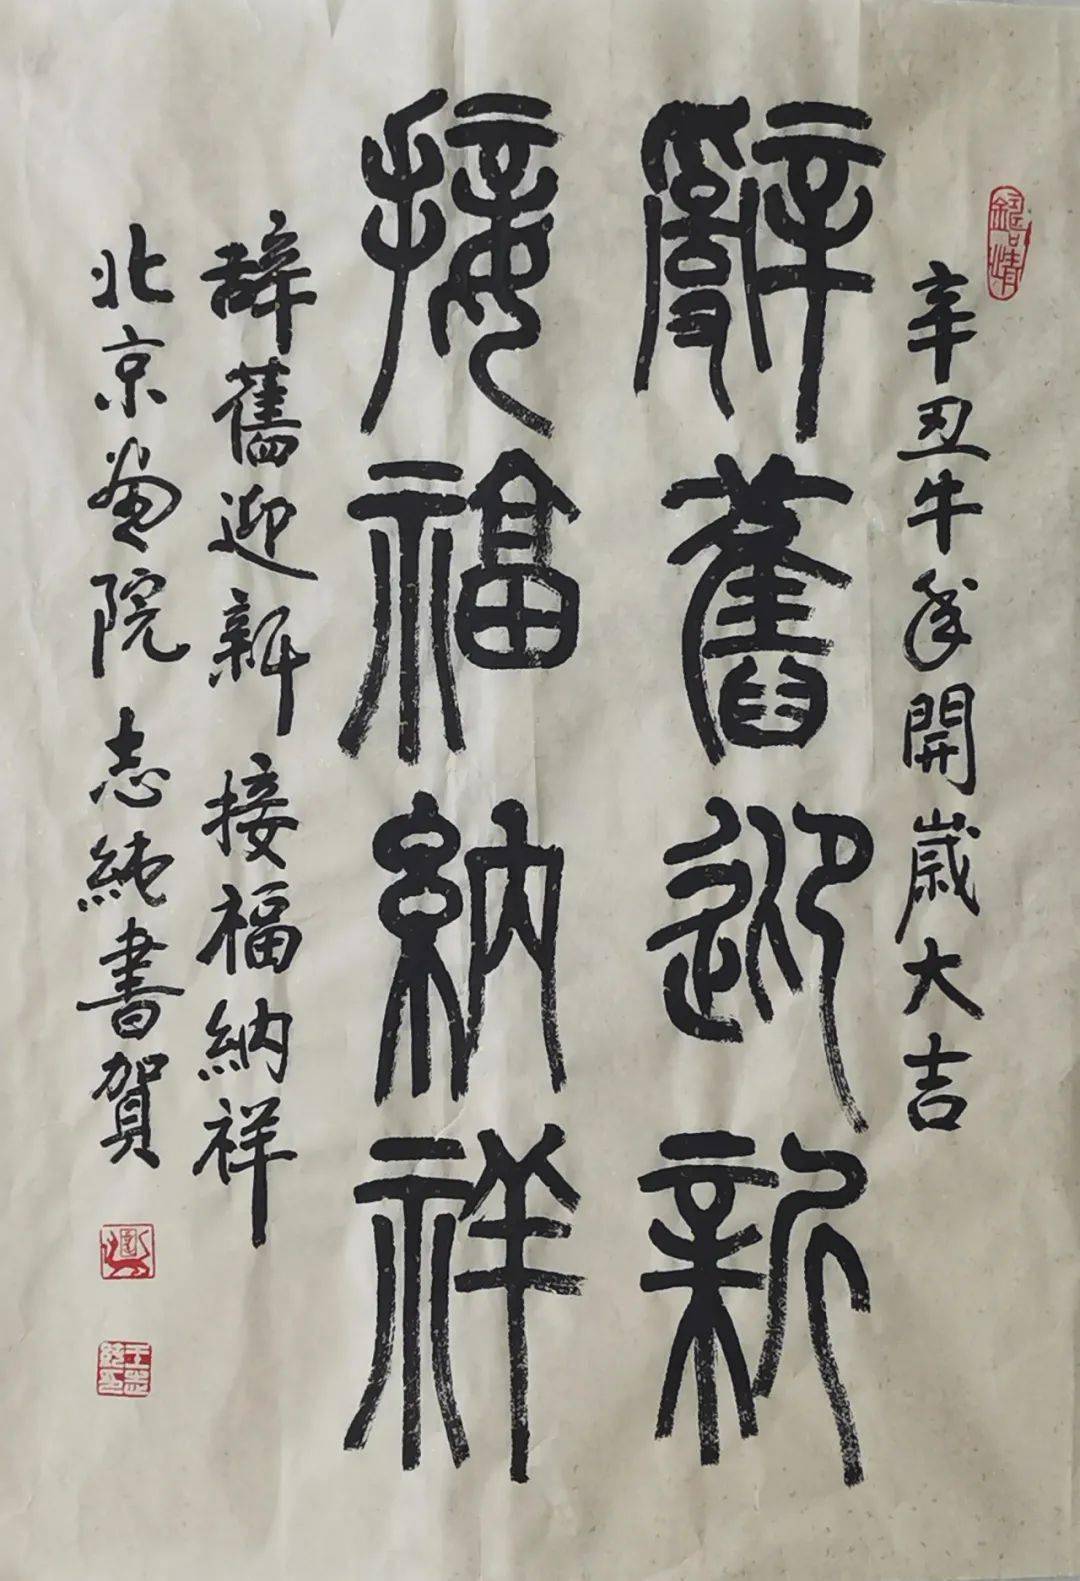 辛丑牛年開歲大吉
辭舊迎新
接福納祥
辭舊迎新 接福納祥
北京畫院 志純書賀